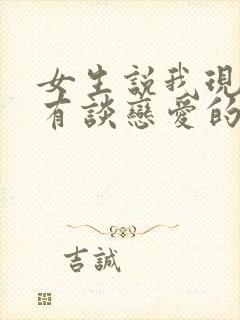 女生説我現
有談戀愛的
吉誠